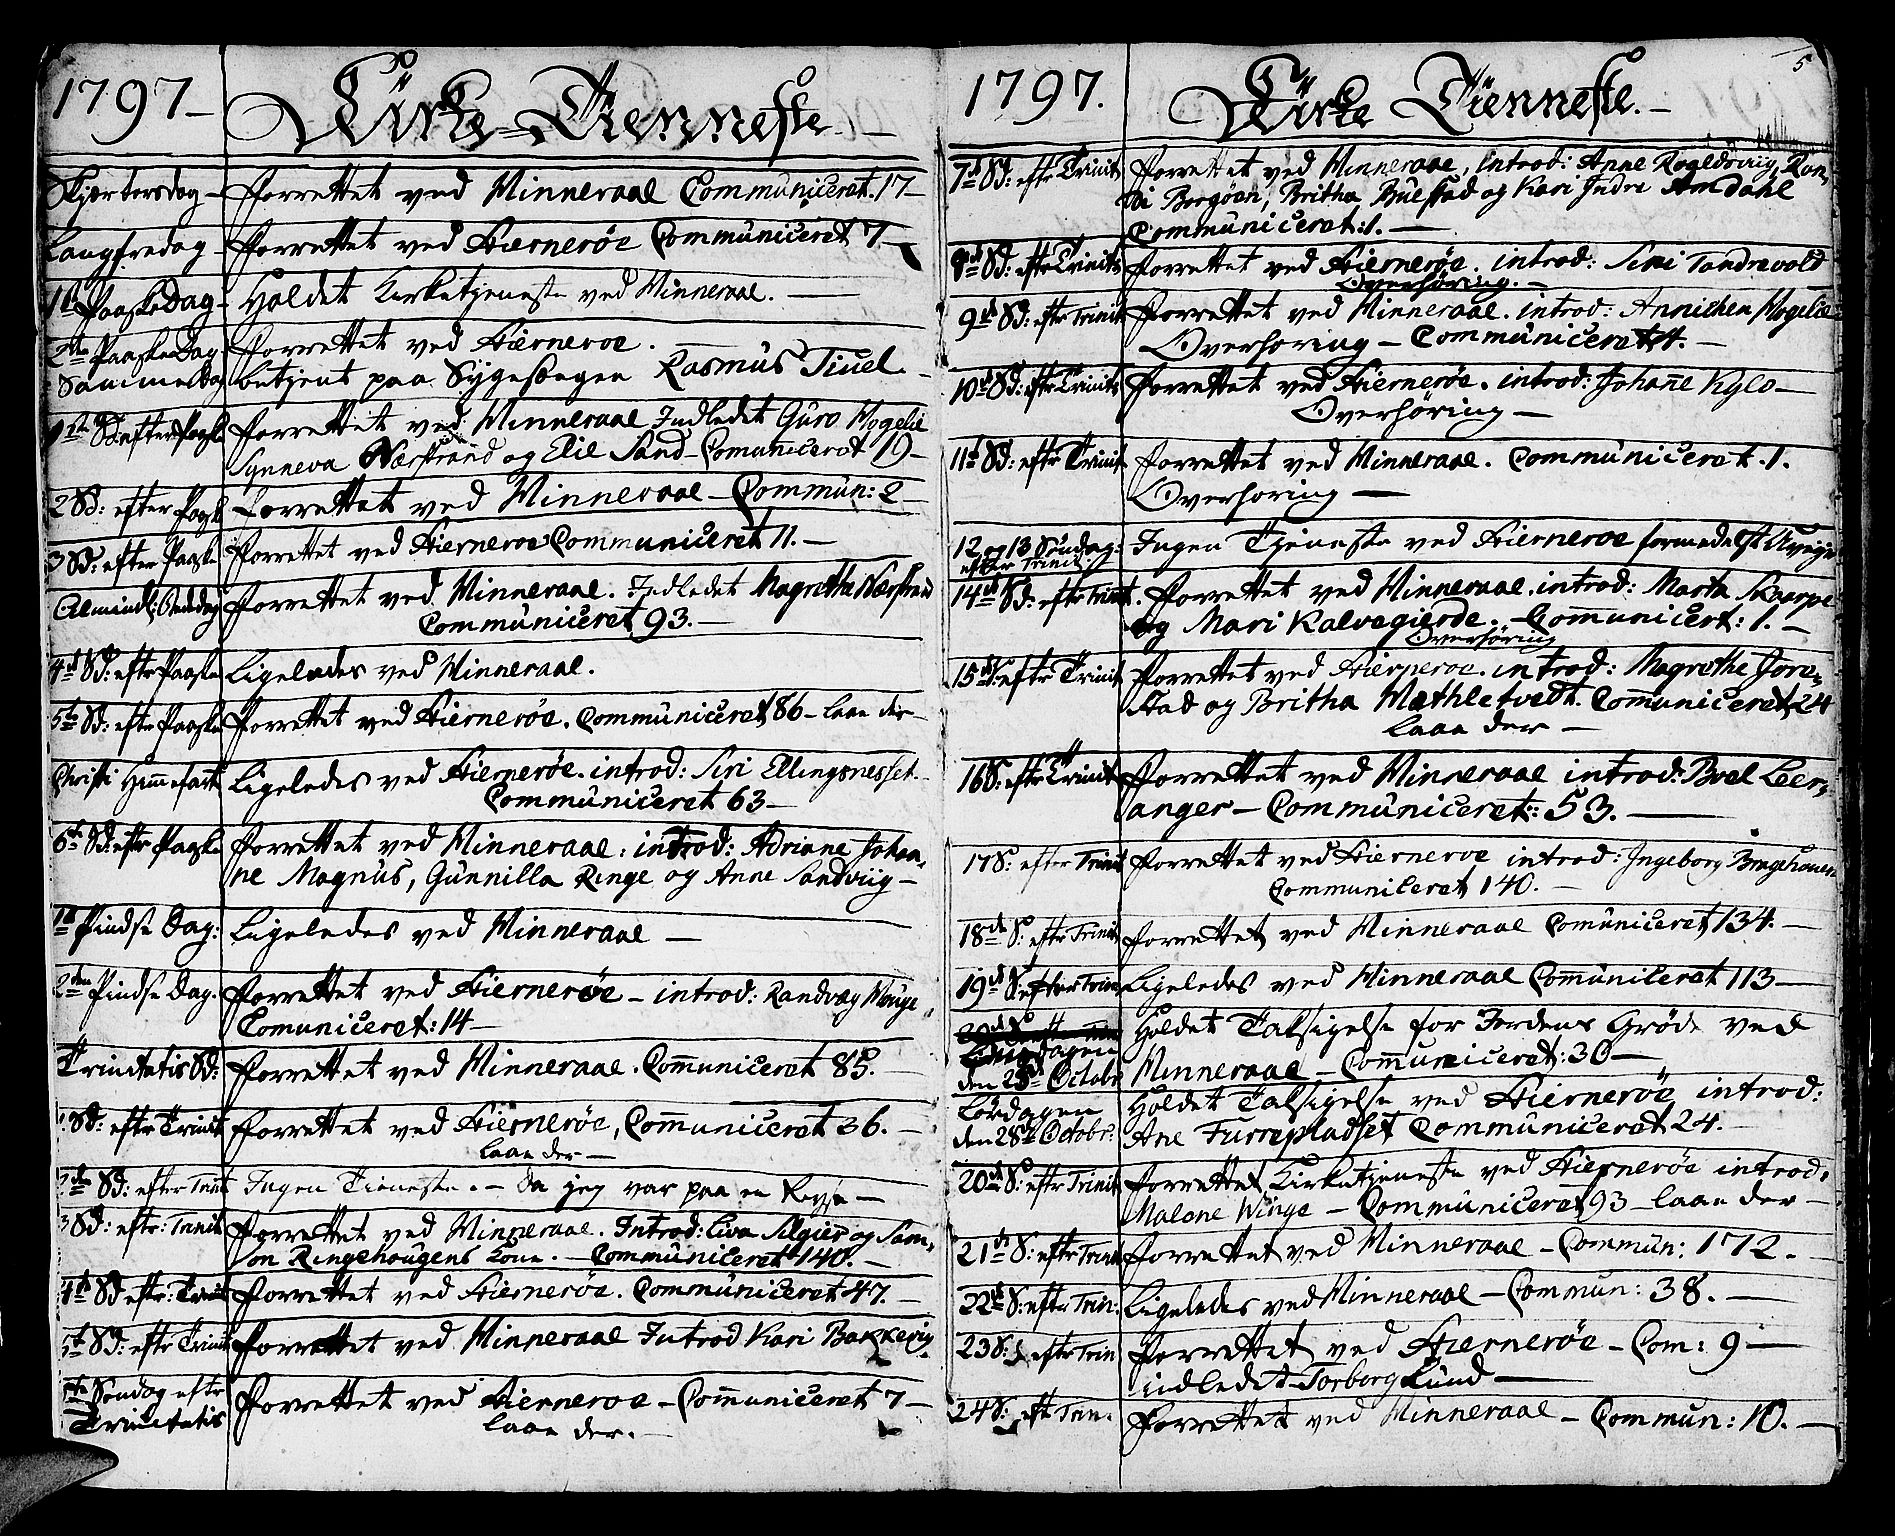 1797 –
Kirke-Tienneste. –
Skjertorsdag – Forrettet ved Minneraae Communiceret. 17 –
Langfredag – Forrettet ved Hiernerøe Communiceret 7 –
1te PaaskeDag – Holdet Kirketjeneste ved Minneraae. –
2den PaaskeDag Forrettet ved Hierneroe. –
SammeDag betjent paa Sygesengen Rasmus Tiuel. –
1te Sd: efter Paaske Forrettet ved Minneraae Indledet Guro Mogelie
Synneva Nærstrand og Elie Sand – Comuniceret 19 –
2 Sd: efter Paaske Forrettet ved Minneraae – Commun: 2 –
3 Sd: efter Paaske Forrettet ved Hierneroe Communiceret 11. –
Almindl: Bededag Forrettet ved Minneraae. Indledet Magretha Nærstrand
Communiceret 93. –
4d Sd: eftr Paaske Ligeledes ved Minneraae.
5te Sd: eftr Paaske Forrettet ved Hiernerøe. Communiceret 86 – laae der –
Christi Himmelfart Ligeledes ved Hiernerøe. introd: Siri Ellingsnesset. –
Communiceret 63 –
6te Sd: eftr Paaske Forrettet ved Minneraae: introd: Adriane Johan-
ne Magnus, Gunnilla Ringe og Anne Sandviig –
1te Pindse Dag: Ligeledes ved Minneraae –
2den Pindse Dag. Forrettet ved Hiernerøe – introd: Randvæg Monge
Comuniceret: 14 –
Trinitatis Sd: Forrettet ved Minneraae. Communiceret 85. –
1 Sd: eftr Trinit Forrettet ved Hiernerøe, Communiceret 36. –
laae der –
2den Sd: efter Trinit Ingen Tieneste. – Da jeg var paa en Reyse –
3 Sd: eftr: Trinit Forrettet ved Minneraae. Introd: Liva Selgier og Sam-
son Ringehougens Kone. – Communiceret 140. –
4d Sd eftr: Trinit Forrettet ved Hiernerøe. Communiceret 47. –
5te Sd: eftr Trinit Forrettet ved Minneraae Introd Kari Bakkeviig
Søndag eftr Forrettet ved Hierneroe – Communiceret 7 –
Trinitatis laae der. –
5
1797.
Kirke Tienneste. –
7d Sd: eftr Trinit Forrettet ved Minneraae, introd: Anne Rogldsviig, Ron-
ni Borgøen, Britha Buestad og Kari Indre Amdahl
Communiceret: 1. –
8d Sd: eftr Trinit Forrettet ved Hiernerøe. introd: Siri Tandrevold
Overhøring. –
9d Sd: eftr Trinit Forrettet ved Minneraae. introd: Annichen Mogelie
Overhøring – Communiceret 4. –
10d Sd: eftr Trinit Forrettet ved Hiernerøe. introd: Johane Kylo –
Overhøring –
11te Sd: eftr Trinit Forrettet ved Minneraae. Communiceret. 1.
Overhøring –
12 og 13 Søndag: Ingen Tjeneste ved Hierneroe formedelst
efter Trinit:
14d Sd: eftr Trinit. Forrettet ved Minneraae. introd: Marta Skaarpe
og Mari Kalvegierde. – Communicert: 1. –
Overhøring
15d S: eftr Trinit Forrettet ved Hierneroe. introd: Magrethe Jøre-
stad og Britha Mæthletvedt. Communiceret 24
laae der –
16 S: eftr Trinit Forrettet ved Minneraae introd: Boel Leer-
anger – Communiceret: 53. –
17 S: efter Trinit Forrettet ved Hierneroe introd: Ingeborg Bragehouen
Communiceret 140. –
18de S: eftr Trinit Forrettet ved Minneraae Comuniceret 134. –
19d S efter Trinit Ligeledes ved Minneraae Communiceret 113 –
Holdet Taksigelse for Jordens Grøde ved
den 25d Octobr Minneraae – Communiceret: 30 –
Lørdagen Holdet Taksigelse ved Hiernerøe introd:
den 28d Octobr: Ane Furrepladset Communiceret 24. –
20d S: eftr Trinit Forrettet Kirketjeneste ved Hiernerøe introd:
Malene Winge – Communiceret 93 – laae der –
21d S: eftr Trinit Forrettet ved Minneraae – Commun: 172. –
22d S: eftr Trin: Ligeledes ved Minneraae – Commun: 38. –
23 S: eftr Trin Forrettet ved Hiernerøe – Com: 9 –
indledet Torborg Lund –
24 S: eftr Trin. Forrettet ved Minneraae – Commun: 10. –